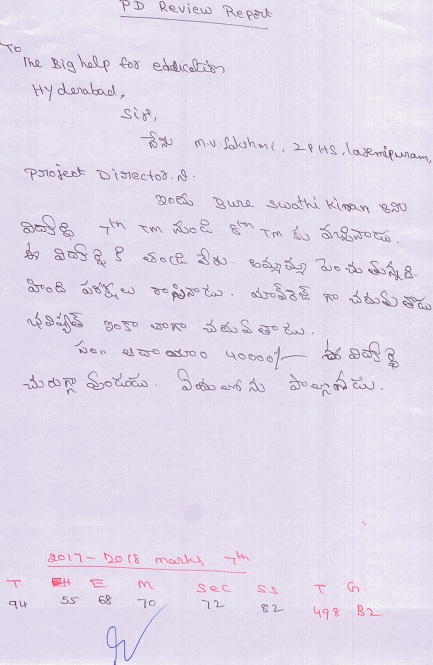 PD Review Report
To
The Big help for edducation
Hyderabad,
Sir,
నేను M.V. Lakshmi, ZPHS,
Project Director ని.
ఇందు Bure Swathi Kiran అను
విద్యార్థి 7th TM నుండి 8th TM కు వచ్చినాడు.
ఈ విద్యార్థి కి తండ్రి లేరు. అమ్మమ్మ పెంచుతున్నది.
హింది పరీక్షలు రాసినాడు. యావరేజ్ గా చదువుతాడు
భవిష్యత్ ఇంకా బాగా చదువుతాడు.
సం.. ఆదాయం 40000/- ఈ విద్యార్థి
చురుగ్గా వుండును. పాల్గొనడు.
2017-2018 marks 7th
T H E M Sec SS T G.
94 55 68 70 72 82 498 B2